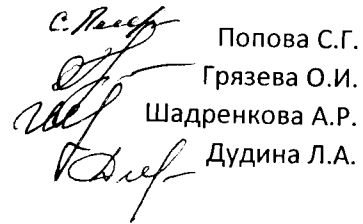 Попова С.Г.
Грязева О.И.
Шадренкова А.Р.
Дудина Л.А.